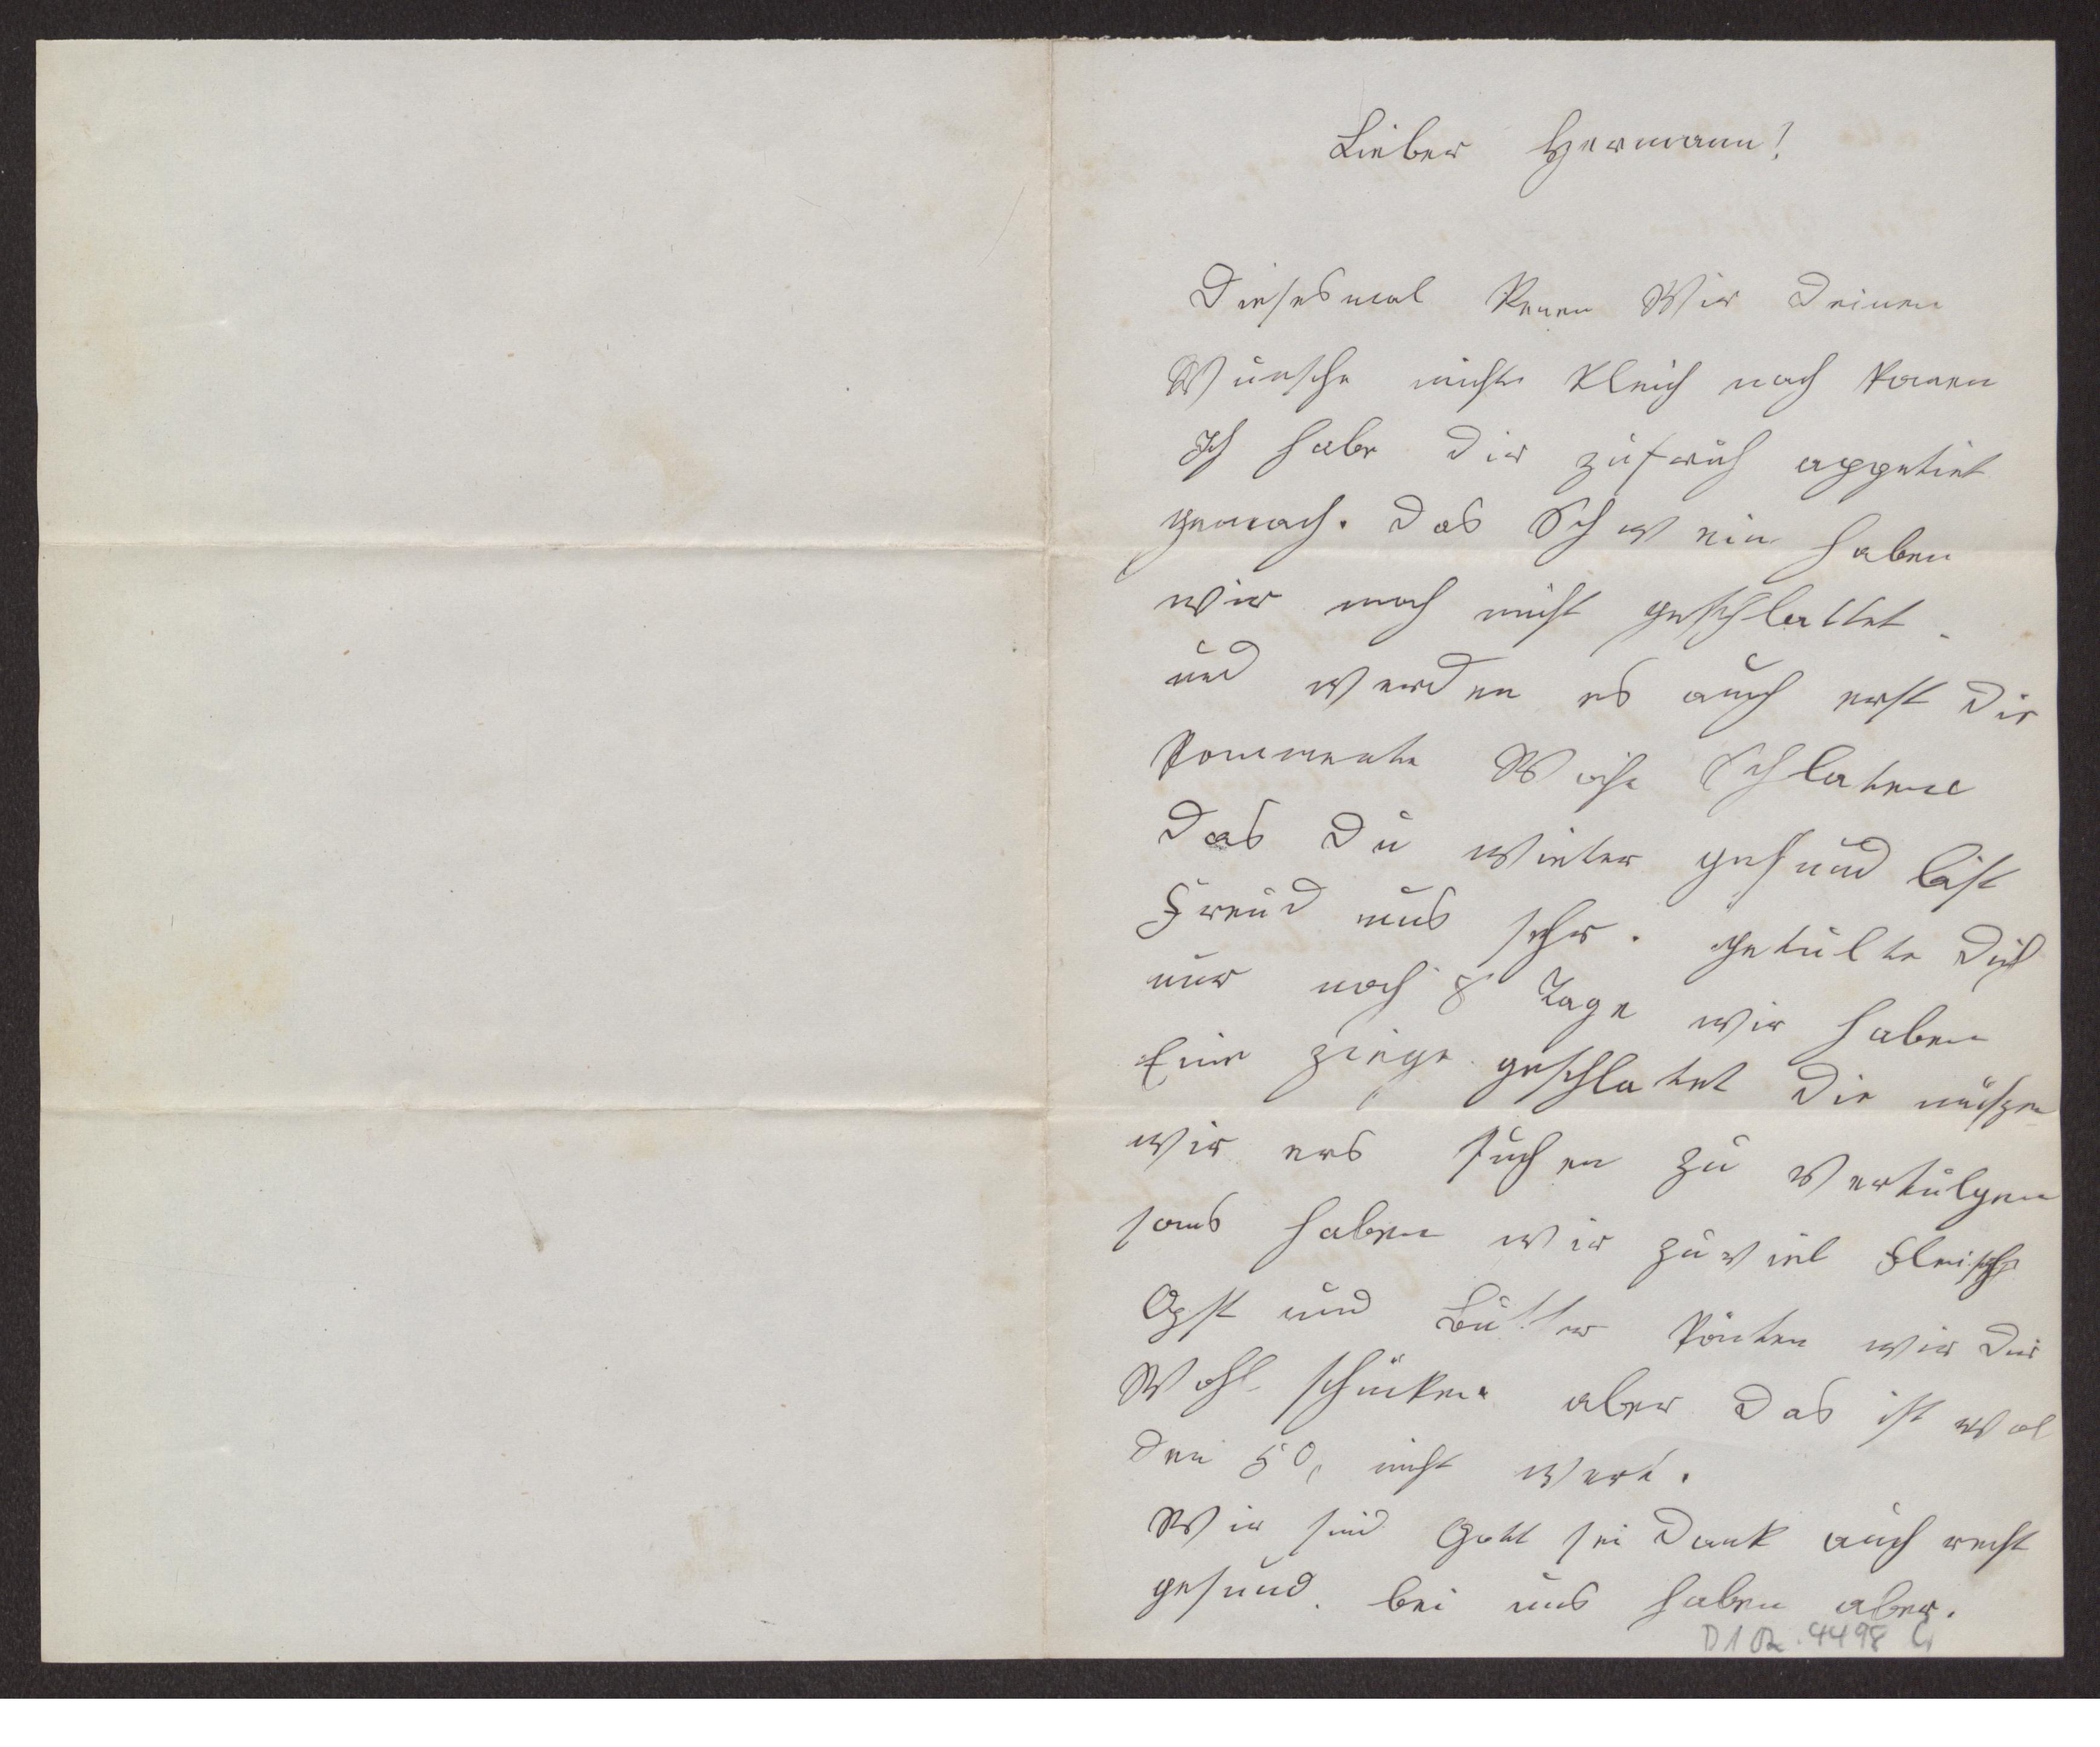 Lieber Hermann!
Diesesmal kenen Wir deinen
Wunsche nicht kleich nach komen
Ich habe dir zufrüh appetiet
gemach. das Schwein haben
wir noch nicht geschlattet.
und werden es auch erst die
kommente Woche Schlaten
das du wieter gesund bist
Freud uns sehr. getulte dich
nur noch 8 Tage wir haben
Eine ziege geschlatet die müszen
wir ers suchen zu vertülgen
sons haben wir zuviel Fleisch
Opst und Butter könten wir dir
Wohl schücken aber das ist wol
den 50, nicht wert.
Wir sind Gott sei Dank auch recht
gesund. bei uns haben aber.
D1 Rz. 4498